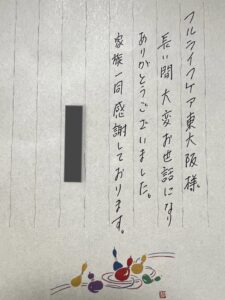 フルライフケア東大阪様
長い間大変お世話になり
ありがとうございました。
家族一同感謝しております。